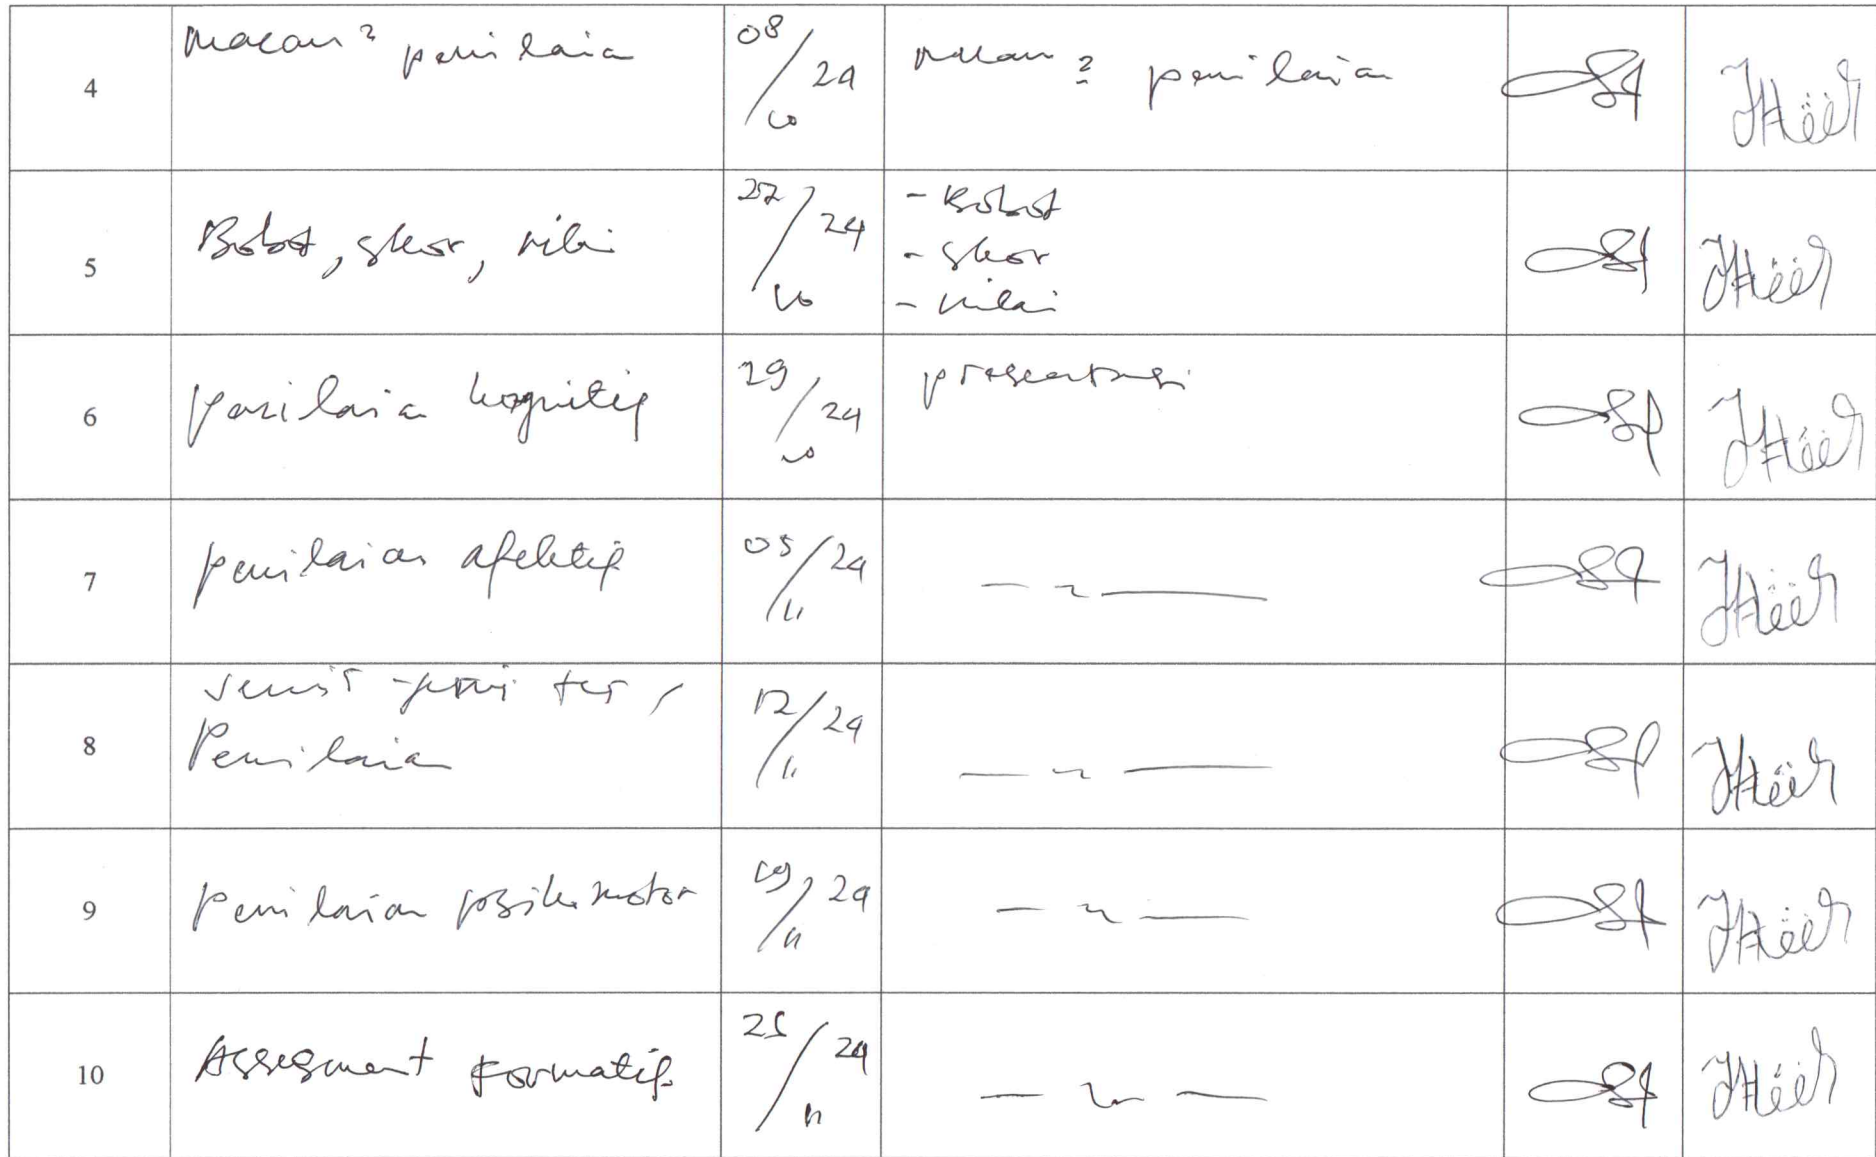 4
Macam² penilaian
08/10 24
Macam² penilaian
5
Bobot, skor, nilai
22/10 24
- Bobot
- skor
- nilai
6
penilaian kognitif
29/10 24
presentasi
7
penilaian afektif
05/11 24
8
Jenis-jenis tes,
Penilaian
12/11 24
9
penilaian psikomotor
19/11 24
10
Assesment Formatif
25/11 24